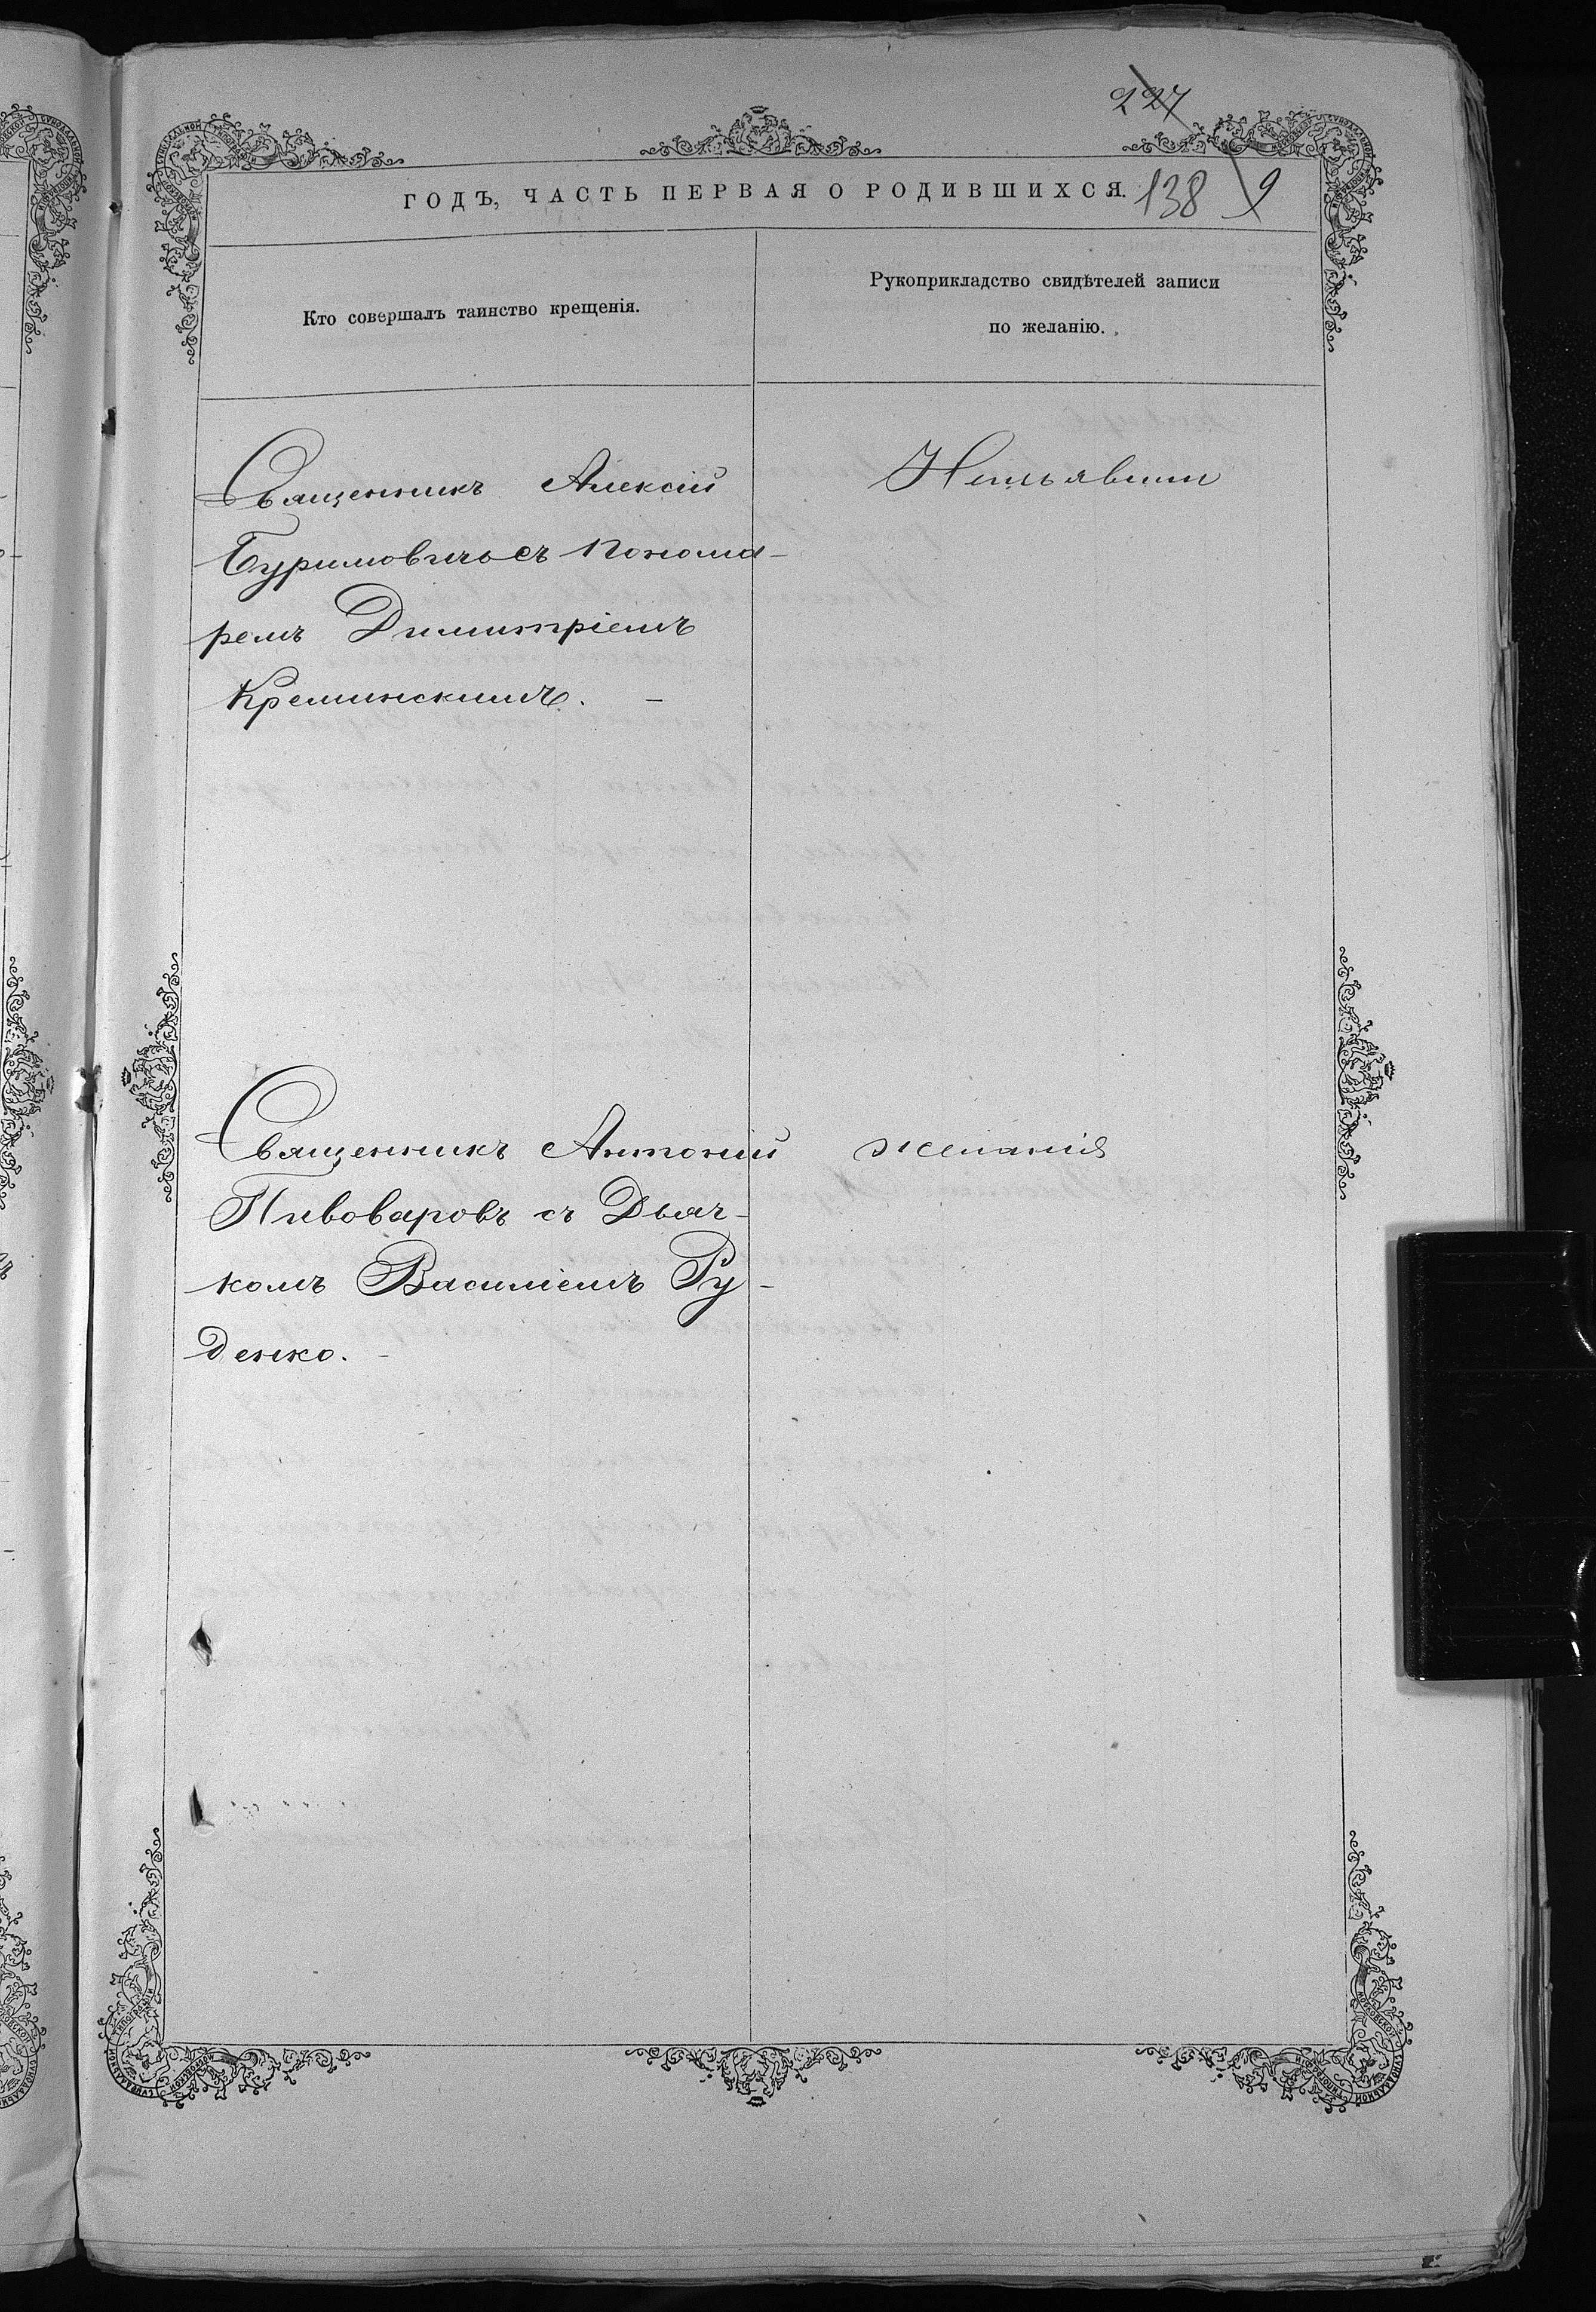 227
ГОДЪ, ЧАСТЬ ПЕРВАЯ О РОДИВШИХСЯ. 138 9
Кто совершалъ таинство крещенія.
Рукоприкладство свидѣтелей записи
по желанію.
Священникъ Алексій
Буримовичъ съ понома-
ремъ Димитріемъ
Креминскимъ. –
Неизъявили
Священникъ Антоній
Пивоваровъ съ Дьяч-
комъ Василіемъ Ру-
денко. –
желанія